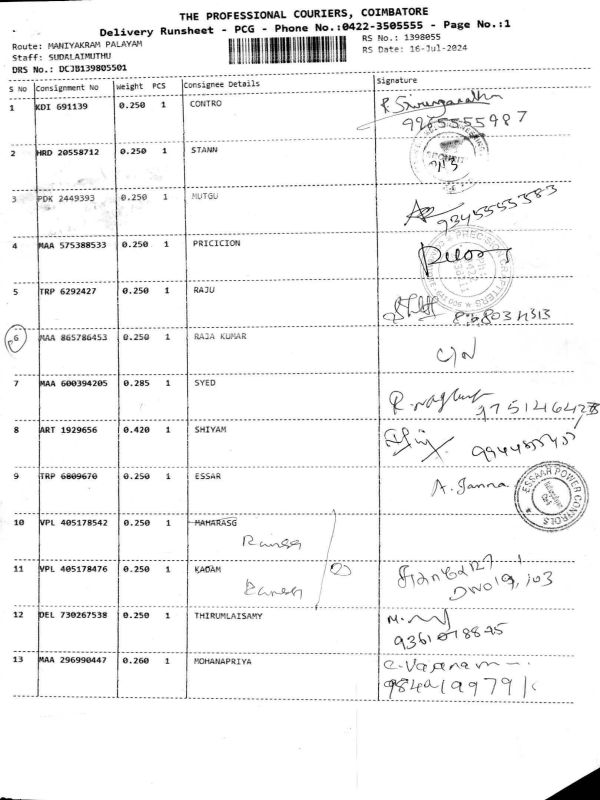 THE PROFESSIONAL COURIERS, COIMBATORE
Delivery Runsheet - PCG - Phone No.:0422-3505555 - Page No.:1
Route: MANIYAKRAM PALAYAM
RS No.: 1398055
Staff: SUDALAIMUTHU
RS Date: 16-Jul-2024
DRS No.: DCJB139805501
S No Consignment No Weight PCS Consignee Details Signature
1 KDI 691139 0.250 1 CONTRO
9965555987
2 HRD 20558712 0.250 1 STANN
3 PDK 2449393 0.250 1 MUTGU
9345555583
4 MAA 575388533 0.250 1 PRICICION
5 TRP 6292427 0.250 1 RAJU
6 MAA 865786453 0.250 1 RAJA KUMAR
7 MAA 600394205 0.285 1 SYED
8 ART 1929656 0.420 1 SHIYAM
9 TRP 6809670 0.250 1 ESSAR A. Janna
ESSAAR POWER CONTROLS
10 VPL 405178542 0.250 1 MAHARASG
11 VPL 405178476 0.250 1 KADAM
12 DEL 730267538 0.250 1 THIRUMLAISAMY
9361078875
13 MAA 296990447 0.260 1 MOHANAPRIYA